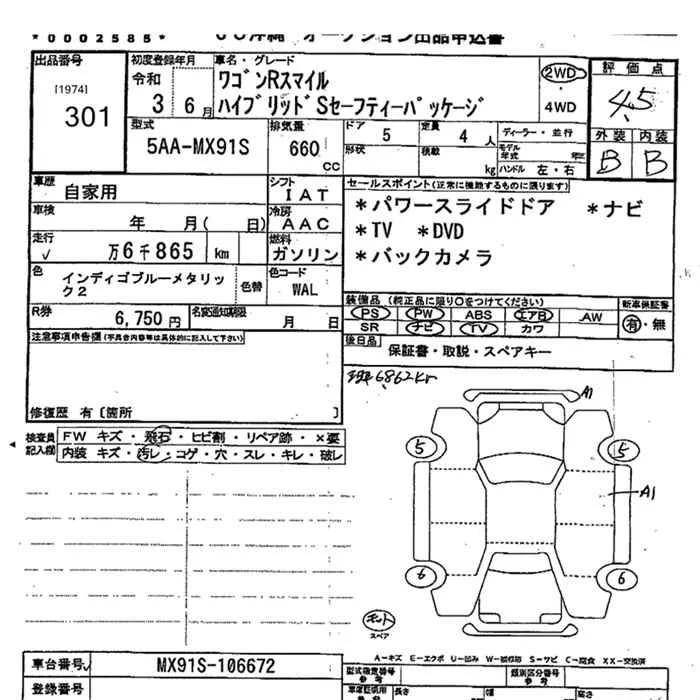 *0002585* JU沖縄 オークション出品申込書
出品番号
[1974]
301
初度登録年月
令和
3 6月
車名・グレード
ワゴンRスマイル
ハイブリッドSセーフティーパッケージ
2WD
・
4WD
評価点
4.5
外装 内装
B B
型式
5AA-MX91S
排気量
660 CC
ドア 5
形状
定員 4 人
積載 kg
ディーラー・並行
モデル年式 年
ハンドル 左・右
車歴
自家用
シフト
IAT
車検
年 月( 日)
冷房
AAC
走行
√ 万6千865 km
燃料
ガソリン
色
インディゴブルーメタリック2
色替
色コード
WAL
R券
6,750円
名変通知期限
月 日
セールスポイント(正常に機能するものに限ります)
*パワースライドドア *ナビ
*TV *DVD
*バックカメラ
装備品 (純正品に限り○をつけてください)
PS PW ABS エアB AW
SR ナビ TV カワ
新車保証書
有・無
後日品
保証書・取説・スペアキー
注意事項申告欄(不具合内容等は具体的に記入して下さい)
修復歴 有〔箇所 〕
現 6862km
検査員記入欄
FW キズ・飛石・ヒビ割・リペア跡・×要
内装 キズ・汚レ・コゲ・穴・スレ・キレ・破レ
A1
5 5
A1
6 6
キット
スペア
A-キズ E-エクボ U-凹み W-補修跡 S-サビ C-腐食 XX-交換済
車台番号
√ MX91S-106672
登録番号
型式指定番号
参考
類別区分番号
参考
車庫証明用
参考
長さ
幅
高さ